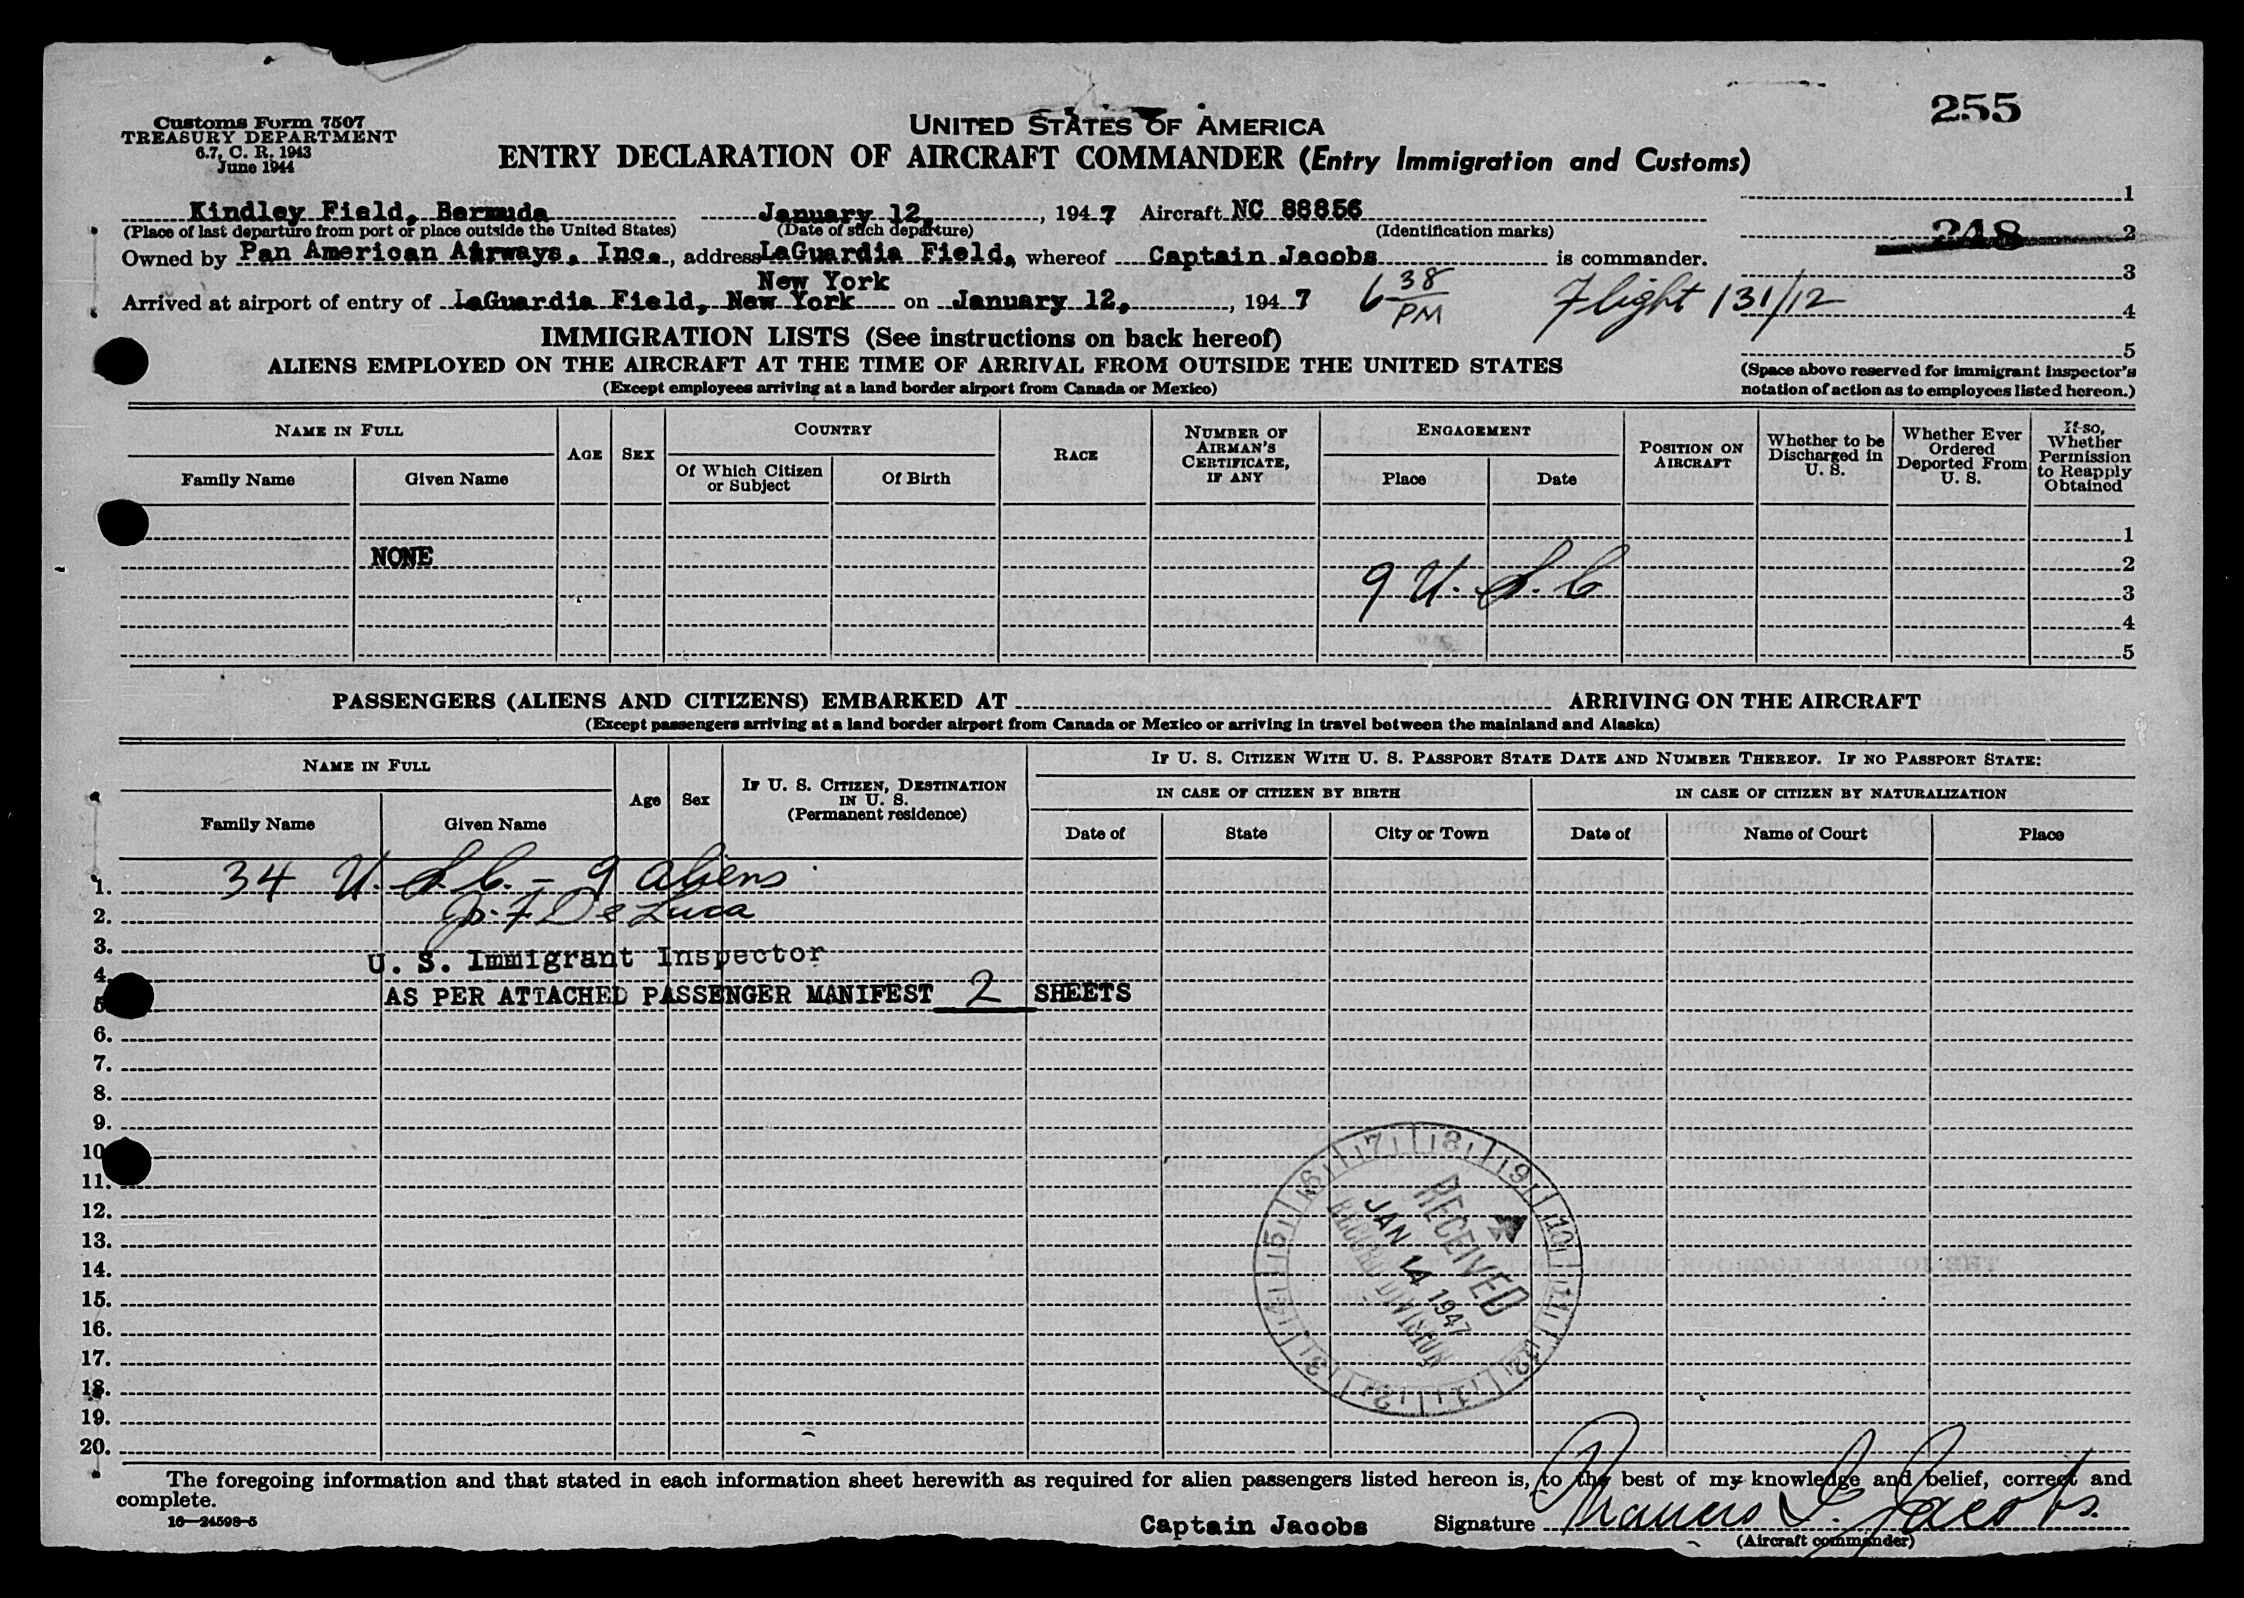 255
Customs Form 7507
TREASURY DEPARTMENT
6.7, C. R. 1943
June 1944
UNITED STATES OF AMERICA
ENTRY DECLARATION OF AIRCRAFT COMMANDER (Entry Immigration and Customs)
Kindley Field, Bermuda January 12, , 1947 Aircraft NC 88856
(Place of last departure from port or place outside the United States) (Date of such departure) (Identification marks)
Owned by Pan American Airways, Inc., address LaGuardia Field, whereof Captain Jacobs is commander.
New York
Arrived at airport of entry of LaGuardia Field, New York on January 12, , 1947 6 38 PM Flight 131/12
1
248 2
3
4
5
(Space above reserved for immigrant inspector's
notation of action as to employees listed hereon.)
IMMIGRATION LISTS (See instructions on back hereof)
ALIENS EMPLOYED ON THE AIRCRAFT AT THE TIME OF ARRIVAL FROM OUTSIDE THE UNITED STATES
(Except employees arriving at a land border airport from Canada or Mexico)
NAME IN FULL
Family Name Given Name
AGE SEX
COUNTRY
Of Which Citizen or Subject Of Birth
RACE
NUMBER OF AIRMAN'S CERTIFICATE, IF ANY
ENGAGEMENT
Place Date
POSITION ON AIRCRAFT
Whether to be Discharged in U. S.
Whether Ever Ordered Deported From U. S.
If so, Whether Permission to Reapply Obtained
1
NONE 2
9 U. S. C 3
4
5
PASSENGERS (ALIENS AND CITIZENS) EMBARKED AT ARRIVING ON THE AIRCRAFT
(Except passengers arriving at a land border airport from Canada or Mexico or arriving in travel between the mainland and Alaska)
NAME IN FULL
Family Name Given Name
Age Sex
IF U. S. CITIZEN, DESTINATION IN U. S.
(Permanent residence)
IF U. S. CITIZEN WITH U. S. PASSPORT STATE DATE AND NUMBER THEREOF. IF NO PASSPORT STATE:
IN CASE OF CITIZEN BY BIRTH IN CASE OF CITIZEN BY NATURALIZATION
Date of State City or Town Date of Name of Court Place
1. 34 U. S. C. - 9 aliens
2. J. F De Luca
3. U. S. Immigrant Inspector
4.
5. AS PER ATTACHED PASSENGER MANIFEST 2 SHEETS
6.
7.
8.
9.
10.
11.
12.
13.
14.
15.
16.
17.
18.
19.
20.
7 8 9 10 11 12 1 2 3 4 5 6
RECEIVED
JAN 14 1947
RECORD DIVISION
The foregoing information and that stated in each information sheet herewith as required for alien passengers listed hereon is, to the best of my knowledge and belief, correct and
complete.
16—24598-5
Captain Jacobs Signature Francis L. Jacobs.
(Aircraft commander)